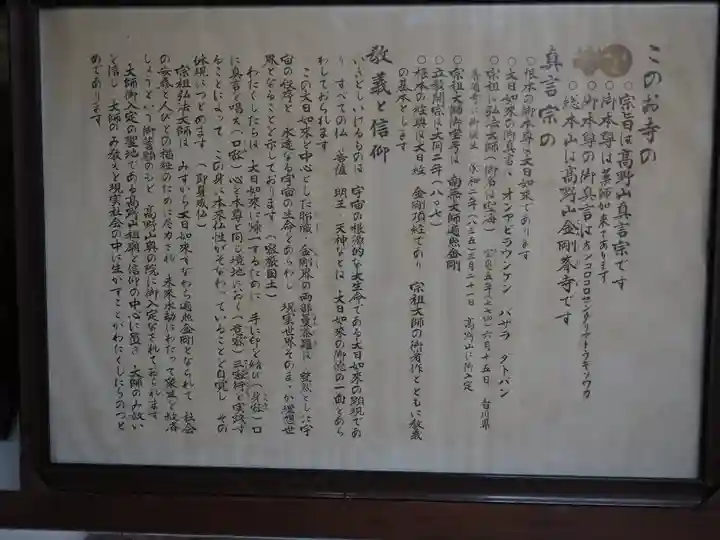 このお寺の
○宗旨は高野山真言宗です
○御本尊は薬師如来であります
○御本尊の御真言はオンコロコロセンダリマトウギソワカ
○総本山は高野山金剛峯寺です
真言宗の
○根本の御本尊は大日如来であります
○大日如来の御真言 オンアビラウンケン バザラ ダトバン
○宗祖は弘法大師(御名は空海) 宝亀五年(七七四)六月十五日 香川県
善通寺に御誕生 承和二年(八三五)三月二十一日 高野山に御入定
○宗祖大師御宝号は 南無大師遍照金剛
○立教開宗は大同二年(八〇七)
○根本の経典は大日経 金剛頂経であり 宗祖大師の御著作とともに教義
の基本とします
教義と信仰
いきとしいけるものは 宇宙の根源的な大生命である大日如来の顕現であ
り すべての仏 菩薩 明王 天神などは 大日如来の御徳の一面をあら
わしておられます
この大日如来を中心とした胎蔵 金剛界の両部曼荼羅は 整然とした宇
宙の秩序と 永遠なる宇宙の生命とをあらわし 現実世界そのままが理想世
界となることを示しております (密厳国土)
わたくしたちは 大日如来に帰一するために 手に印を結び(身密)口
に真言を唱え(口密)心を本尊と同じ境地におく(意密)三密行を実践す
ることによって この身に本来仏性がそなわっていることを自覚し その
体現につとめます (即身成仏)
宗祖弘法大師は みずから大日如来すなわち遍照金剛となられて 社会
の安泰と人びとの福祉のために尽力され 未来永劫にわたって衆生を救済
しようという御誓願のもと 高野山奥の院に御入定なされておられます
大師御入定の聖地である高野山を祖廟と信仰の中心に置き 大師のみ救い
を信じ 大師のみ教えを現実社会の中に生かすことがわたくしたちのつと
めであります